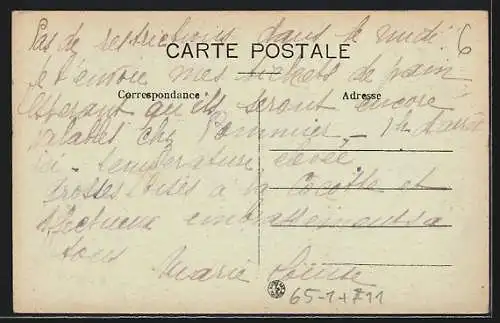 Pas de restrictions dans le midi 6
CARTE POSTALE
je t'envoie mes tickets de pain
Correspondance Adresse
espérant qu'ils seront encore
valables chez Pommier, -
- température élevée
grosses bises à la Cocotte et
affectueux embrassements à
tous
Marie Louise
65-1+711